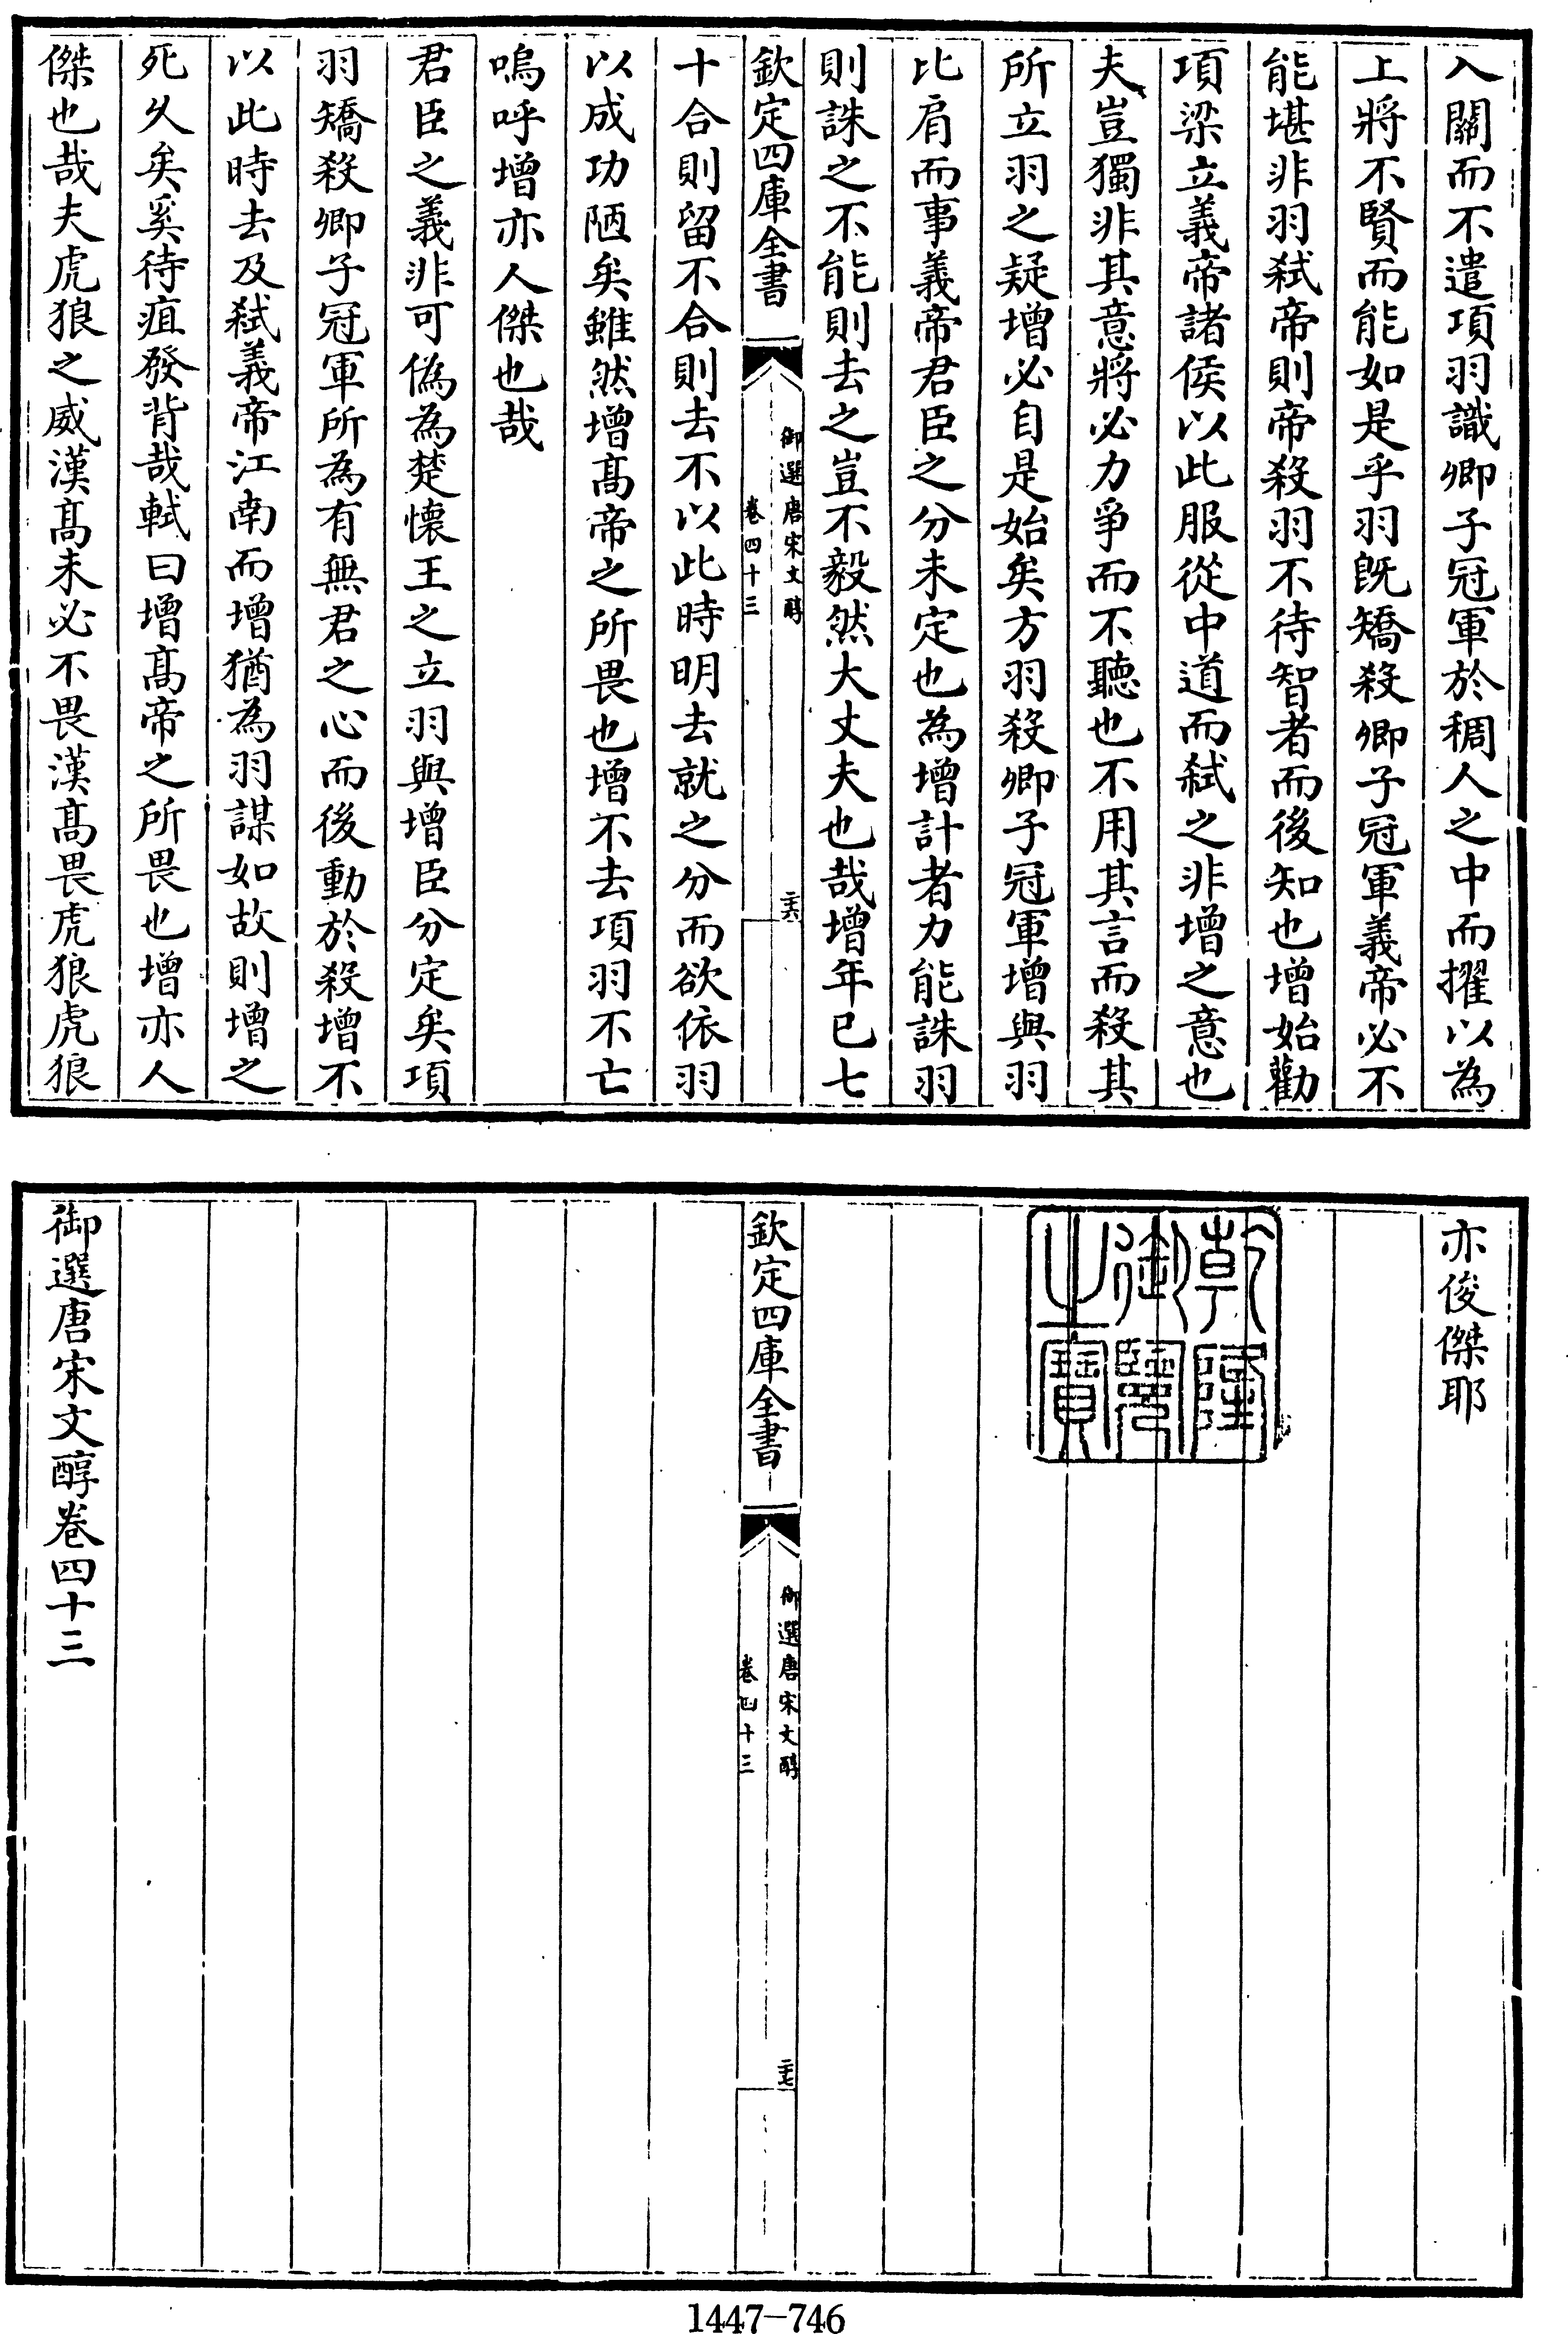 入關而不遣項羽識卿子冠軍於稠人之中而擢以為
上將不賢而能如是乎羽既矯殺卿子冠軍義帝必不
能堪非羽弑帝則帝殺羽不待智者而後知也增始勸
項梁立義帝諸侯以此服從中道而弑之非增之意也
夫豈獨非其意將必力爭而不聽也不用其言而殺其
所立羽之疑增必自是始矣方羽殺卿子冠軍增與羽
比肩而事義帝君臣之分未定也為增計者力能誅羽
則誅之不能則去之豈不毅然大丈夫也哉增年已七
欽定四庫全書
御選唐宋文醇
卷四十三
二十六
十合則留不合則去不以此時明去就之分而欲依羽
以成功陋矣雖然增髙帝之所畏也增不去項羽不亡
嗚呼增亦人傑也哉
君臣之義非可偽為楚懷王之立羽與增臣分定矣項
羽矯殺卿子冠軍所為有無君之心而後動於殺增不
以此時去及弑義帝江南而增猶為羽謀如故則增之
死久矣奚待疽發背哉軾曰增髙帝之所畏也增亦人
傑也哉夫虎狼之威漢髙未必不畏漢髙畏虎狼虎狼
亦俊傑耶
乾隆
御覽
之寶
欽定四庫全書
御選唐宋文醇
卷四十三
二十七
御選唐宋文醇卷四十三
1447-746